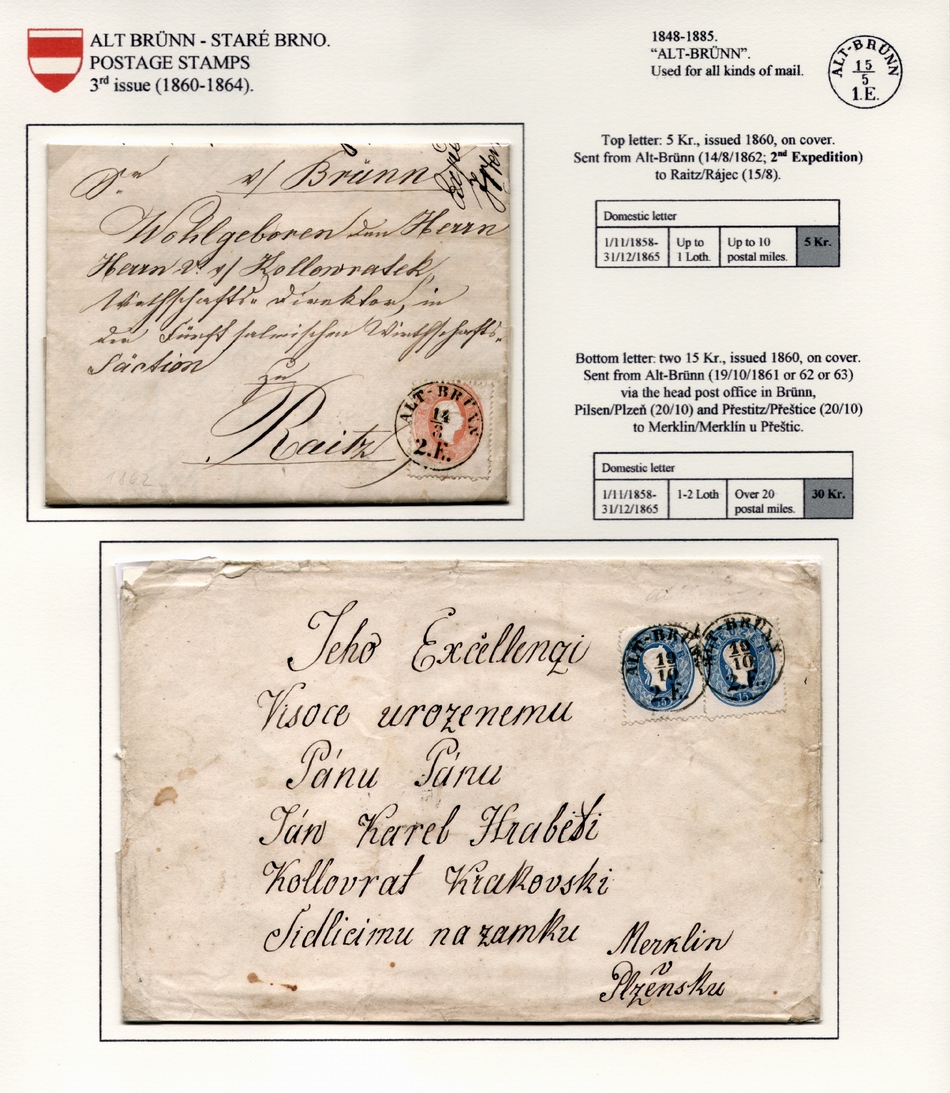 ALT BRÜNN - STARÉ BRNO.
POSTAGE STAMPS
3rd issue (1860-1864).
1848-1885.
“ALT-BRÜNN”.
Used for all kinds of mail.
ALT-BRÜNN
15
5
1.E.
Top letter: 5 Kr., issued 1860, on cover.
Sent from Alt-Brünn (14/8/1862; 2nd Expedition)
to Raitz/Rájec (15/8).
Domestic letter
1/11/1858- Up to Up to 10 5 Kr.
31/12/1865 1 Loth. postal miles.
v/ Brünn
Wohlgeboren den Herrn
Herrn v/ Kollowratek,
Wirthschafts- Direktor, in
der Fürst salmischen Wirthschafts-
Säction
zu
Raitz
ALT-BRÜNN
14
8
2.E.
1862
Bottom letter: two 15 Kr., issued 1860, on cover.
Sent from Alt-Brünn (19/10/1861 or 62 or 63)
via the head post office in Brünn,
Pilsen/Plzeň (20/10) and Přestitz/Přeštice (20/10)
to Merklin/Merklín u Přeštic.
Domestic letter
1/11/1858- 1-2 Loth Over 20 30 Kr.
31/12/1865 postal miles.
Jeho Excěllenqi
Visoce urozenemu
Pánu Pánu
Ján Karel Hraběti
Kollovrat Krakovski
Sidlicimu na zamku
Merklin
v
Plzěnsku
ALT-BRÜNN
19
10
2.E.
ALT-BRÜNN
19
10
2.E.